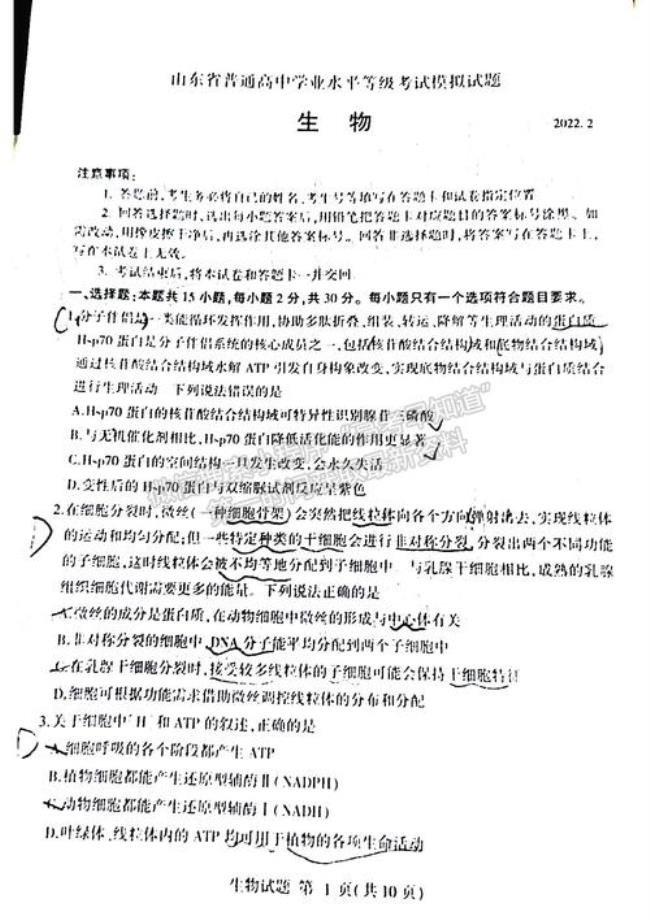 山东省普通高中学业水平等级考试模拟试题
生 物
2022.2
注意事项:
1. 答题前,考生务必将自己的姓名、考生号等填写在答题卡和试卷指定位置
2. 回答选择题时,选出每小题答案后,用铅笔把答题卡对应题目的答案标号涂黑。如
需改动,用橡皮擦干净后,再选涂其他答案标号。回答非选择题时,将答案写在答题卡上,
写在本试卷上无效。
3. 考试结束后,将本试卷和答题卡一并交回
一、选择题:本题共15小题,每小题2分,共30分。每小题只有一个选项符合题目要求。
1.分子伴侣是一类能循环发挥作用,协助多肽折叠、组装、转运、降解等生理活动的蛋白质
Hsp70 蛋白是分子伴侣系统的核心成员之一,包括核苷酸结合结构域和底物结合结构域,
通过核苷酸结合结构域水解 ATP 引发自身构象改变,实现底物结合结构域与蛋白质结合
进行生理活动 下列说法错误的是
A.Hsp70 蛋白的核苷酸结合结构域可特异性识别腺苷三磷酸
B.与无机催化剂相比,Hsp70 蛋白降低活化能的作用更显著
C.Hsp70 蛋白的空间结构一旦发生改变,会永久失活
D.变性后的 Hsp70 蛋白与双缩脲试剂反应呈紫色
2.在细胞分裂时,微丝(一种细胞骨架)会突然把线粒体向各个方向弹射出去,实现线粒体
的运动和均匀分配;但一些特定种类的干细胞会进行非对称分裂,分裂出两个不同功能
的子细胞,这时线粒体会被不均等地分配到子细胞中 与乳腺干细胞相比,成熟的乳腺
组织细胞代谢需要更多的能量。下列说法正确的是
A.微丝的成分是蛋白质,在动物细胞中微丝的形成与中心体有关
B.非对称分裂的细胞中,DNA 分子能平均分配到两个子细胞中
C.在乳腺干细胞分裂时,接受较多线粒体的子细胞可能会保持干细胞特征
D.细胞可根据功能需求借助微丝调控线粒体的分布和分配
3.关于细胞中「H 和 ATP 的叙述,正确的是
A.细胞呼吸的各个阶段都产生 ATP
B.植物细胞都能产生还原型辅酶Ⅱ(NADPH)
C.动物细胞都能产生还原型辅酶Ⅰ(NADH)
D.叶绿体、线粒体内的 ATP 均可用于植物的各项生命活动
生物试题 第 1 页(共10页)